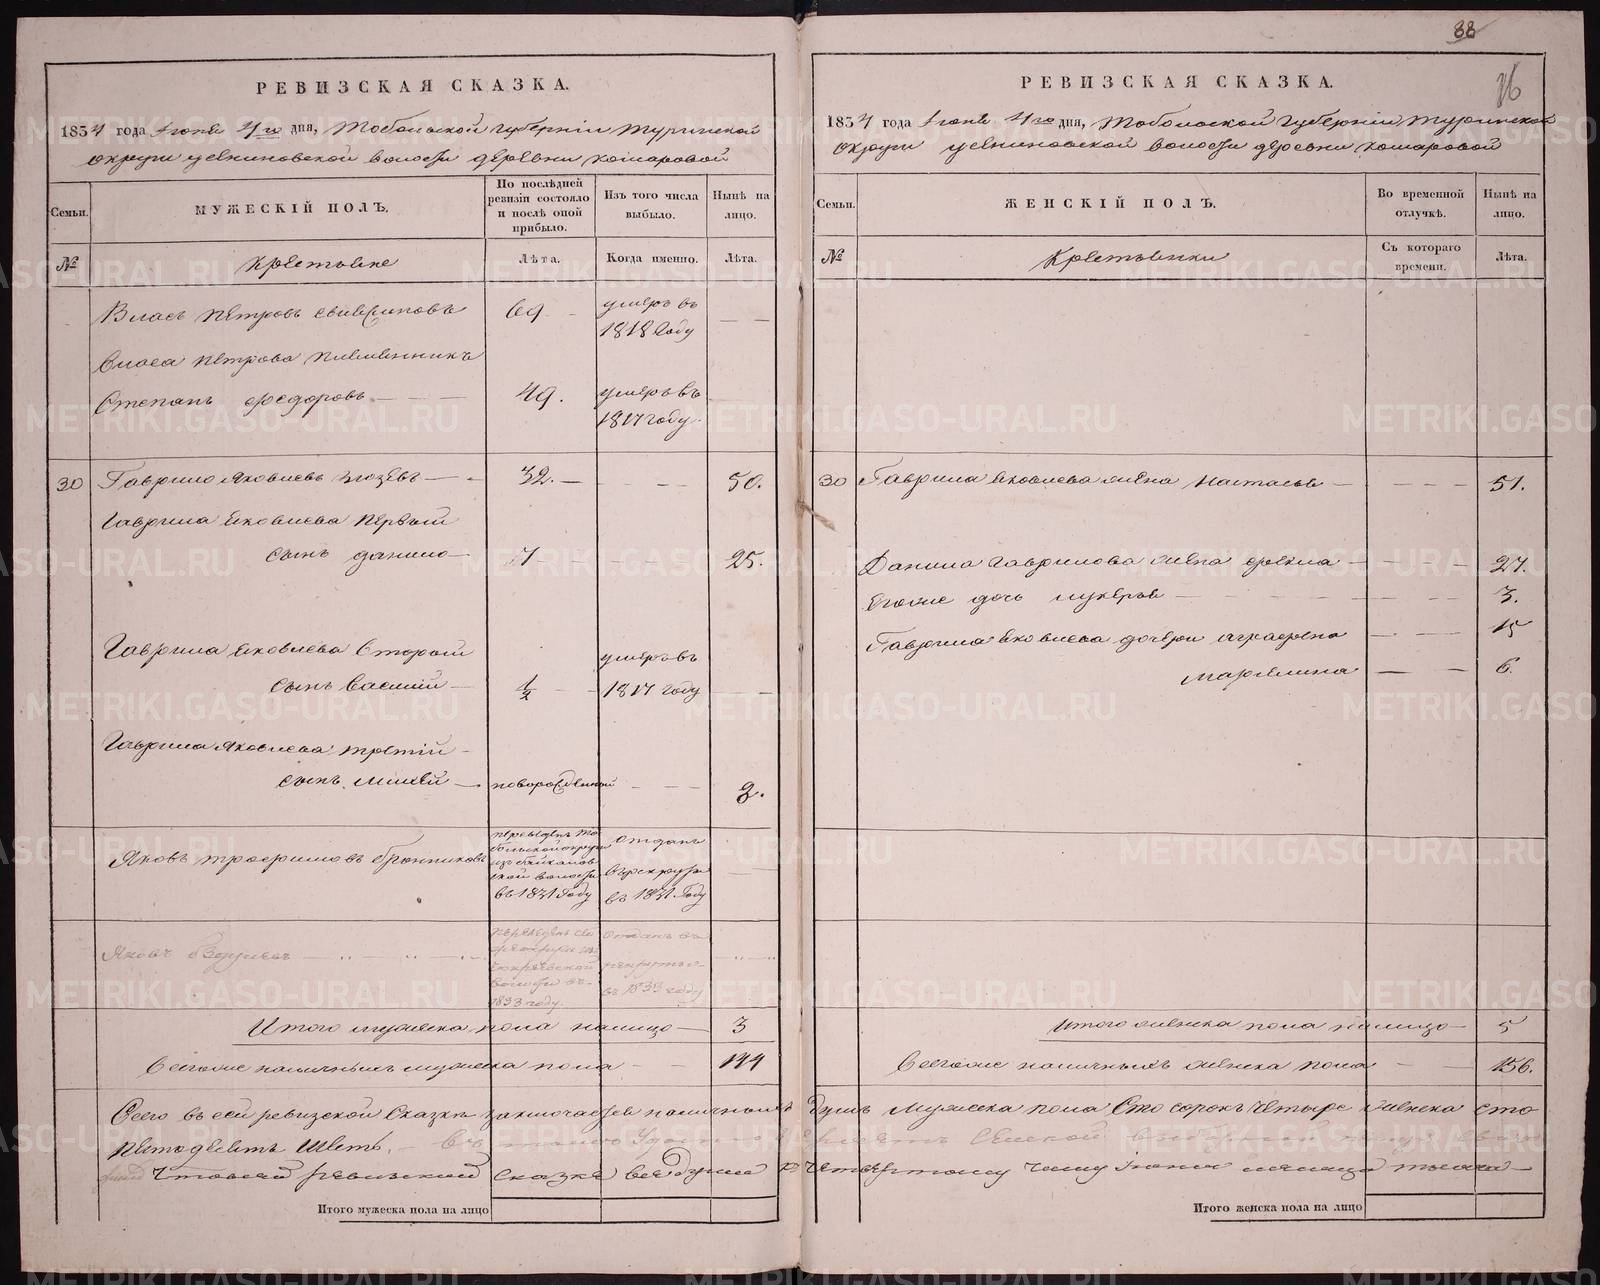 88
76
РЕВИЗСКАЯ СКАЗКА.
1834 года Іюня 4го дня, Тобольской Губерніи Туринской
округи волости деревни Комаровой
Семьи.
МУЖЕСКІЙ ПОЛЪ.
По послѣдней ревизіи состояло и послѣ оной прибыло.
Изъ того числа выбыло.
Нынѣ на лицо.
№
Крестьяне
Лѣта.
Когда именно.
Лѣта.
Власъ Петровъ 69 умеръ въ 1818 году
Власа Петрова племянникъ
Степанъ Федоровъ 49. умеръ въ 1817 году
30 Гаврило Яковлевъ 32. 50.
Гаврила Яковлева первый
сынъ данило 7 25.
Гаврила Яковлева Второй
сынъ Василий 1/2 умеръ въ 1817 году
Гаврила Яковлева третій
сынъ новорожденной 2.
Яковъ трофимовъ
переведенъ Тобольской округи
волости
въ 1831 Году
отданъ
въ рекруты
въ 1831 Году
Яковъ
волости въ
1833 году.
отданъ въ
рекруты
въ 1833 году
Итого мужеска пола налицо 3
Всегоже наличныхъ мужеска пола 144
РЕВИЗСКАЯ СКАЗКА.
1834 года Іюня 4го дня, Тобольской Губерніи Туринской
округи волости деревни Комаровой
Семьи.
ЖЕНСКІЙ ПОЛЪ.
Во временной отлучкѣ.
Нынѣ на лицо.
№
Крестьянки
Съ котораго времени.
Лѣта.
30 Гаврила Яковлева жена Настасья 51.
Данила Гаврилова жена фекла 27.
Егоже дочь лукерья 3.
Гаврила Яковлева дочери аграфена 15
маремьяна 6.
Итого женска пола налицо 5
Всегоже наличныхъ женска пола 156.
Всего въ сей ревизской Сказкѣ заключается наличныхъ душъ Мужеска пола Сто сорокъ четыре женска сто
пятдесятъ шесть.
Что въ сей ревизской сказке все души къ четвертому числу Іюня месяца
Итого мужеска пола на лицо
Итого женска пола на лицо
METRIKI.GASO-URAL.RU